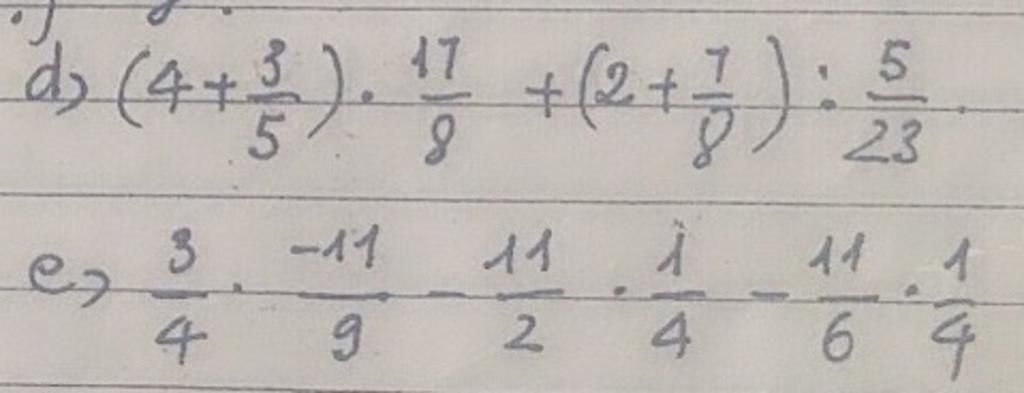 d) (4 + 3/5) . 17/8 + (2 + 7/8) : 5/23
e) 3/4 . -11/9 - 11/2 . 1/4 - 11/6 . 1/4